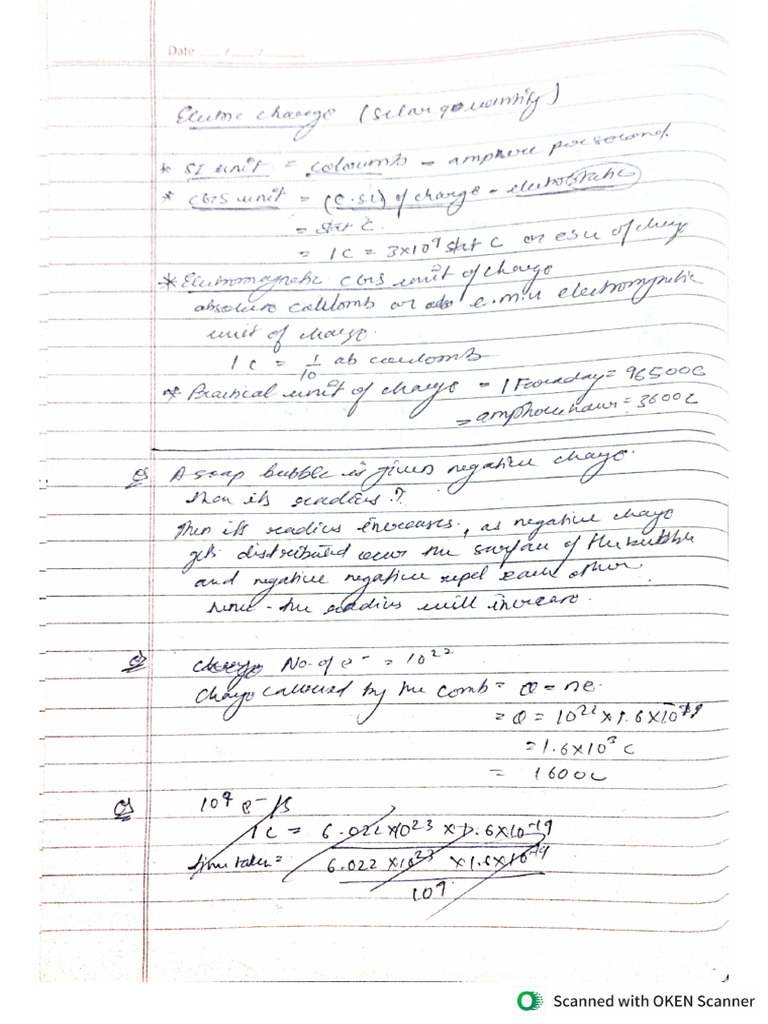 Date ___/___/______
Electric charge (Scalar quantity)
* SI unit = coloumb = amphere per second.
* CGS unit = (e.su) of charge = electrostatic
= stat C.
= 1C = 3x10⁹ stat C or esu of charge
* Electromagnetic CGS unit of charge
absolute coulomb or ab e.m.u electromagnetic
unit of charge.
1 C = 1/10 ab coulomb
* Practical unit of charge = 1 Faraday = 96500C
= amphere hour = 3600C
Q A soap bubble is given negative charge.
then its radius?
then its radius increases, as negative charge
gets distributed over the surface of the bubble
and negative negative repel each other
hence the radius will increase.
Q No. of e⁻ = 10²²
Charge by the comb = Q = ne.
= Q = 10²² x 1.6x10⁻¹⁹
= 1.6x10³ C
= 1600C
Q 10⁹ e⁻/s
1C = 6.022x10²³ x 1.6x10⁻¹⁹
time taken = 6.022x10²³ x 1.6x10⁻¹⁹
10⁹
Scanned with OKEN Scanner